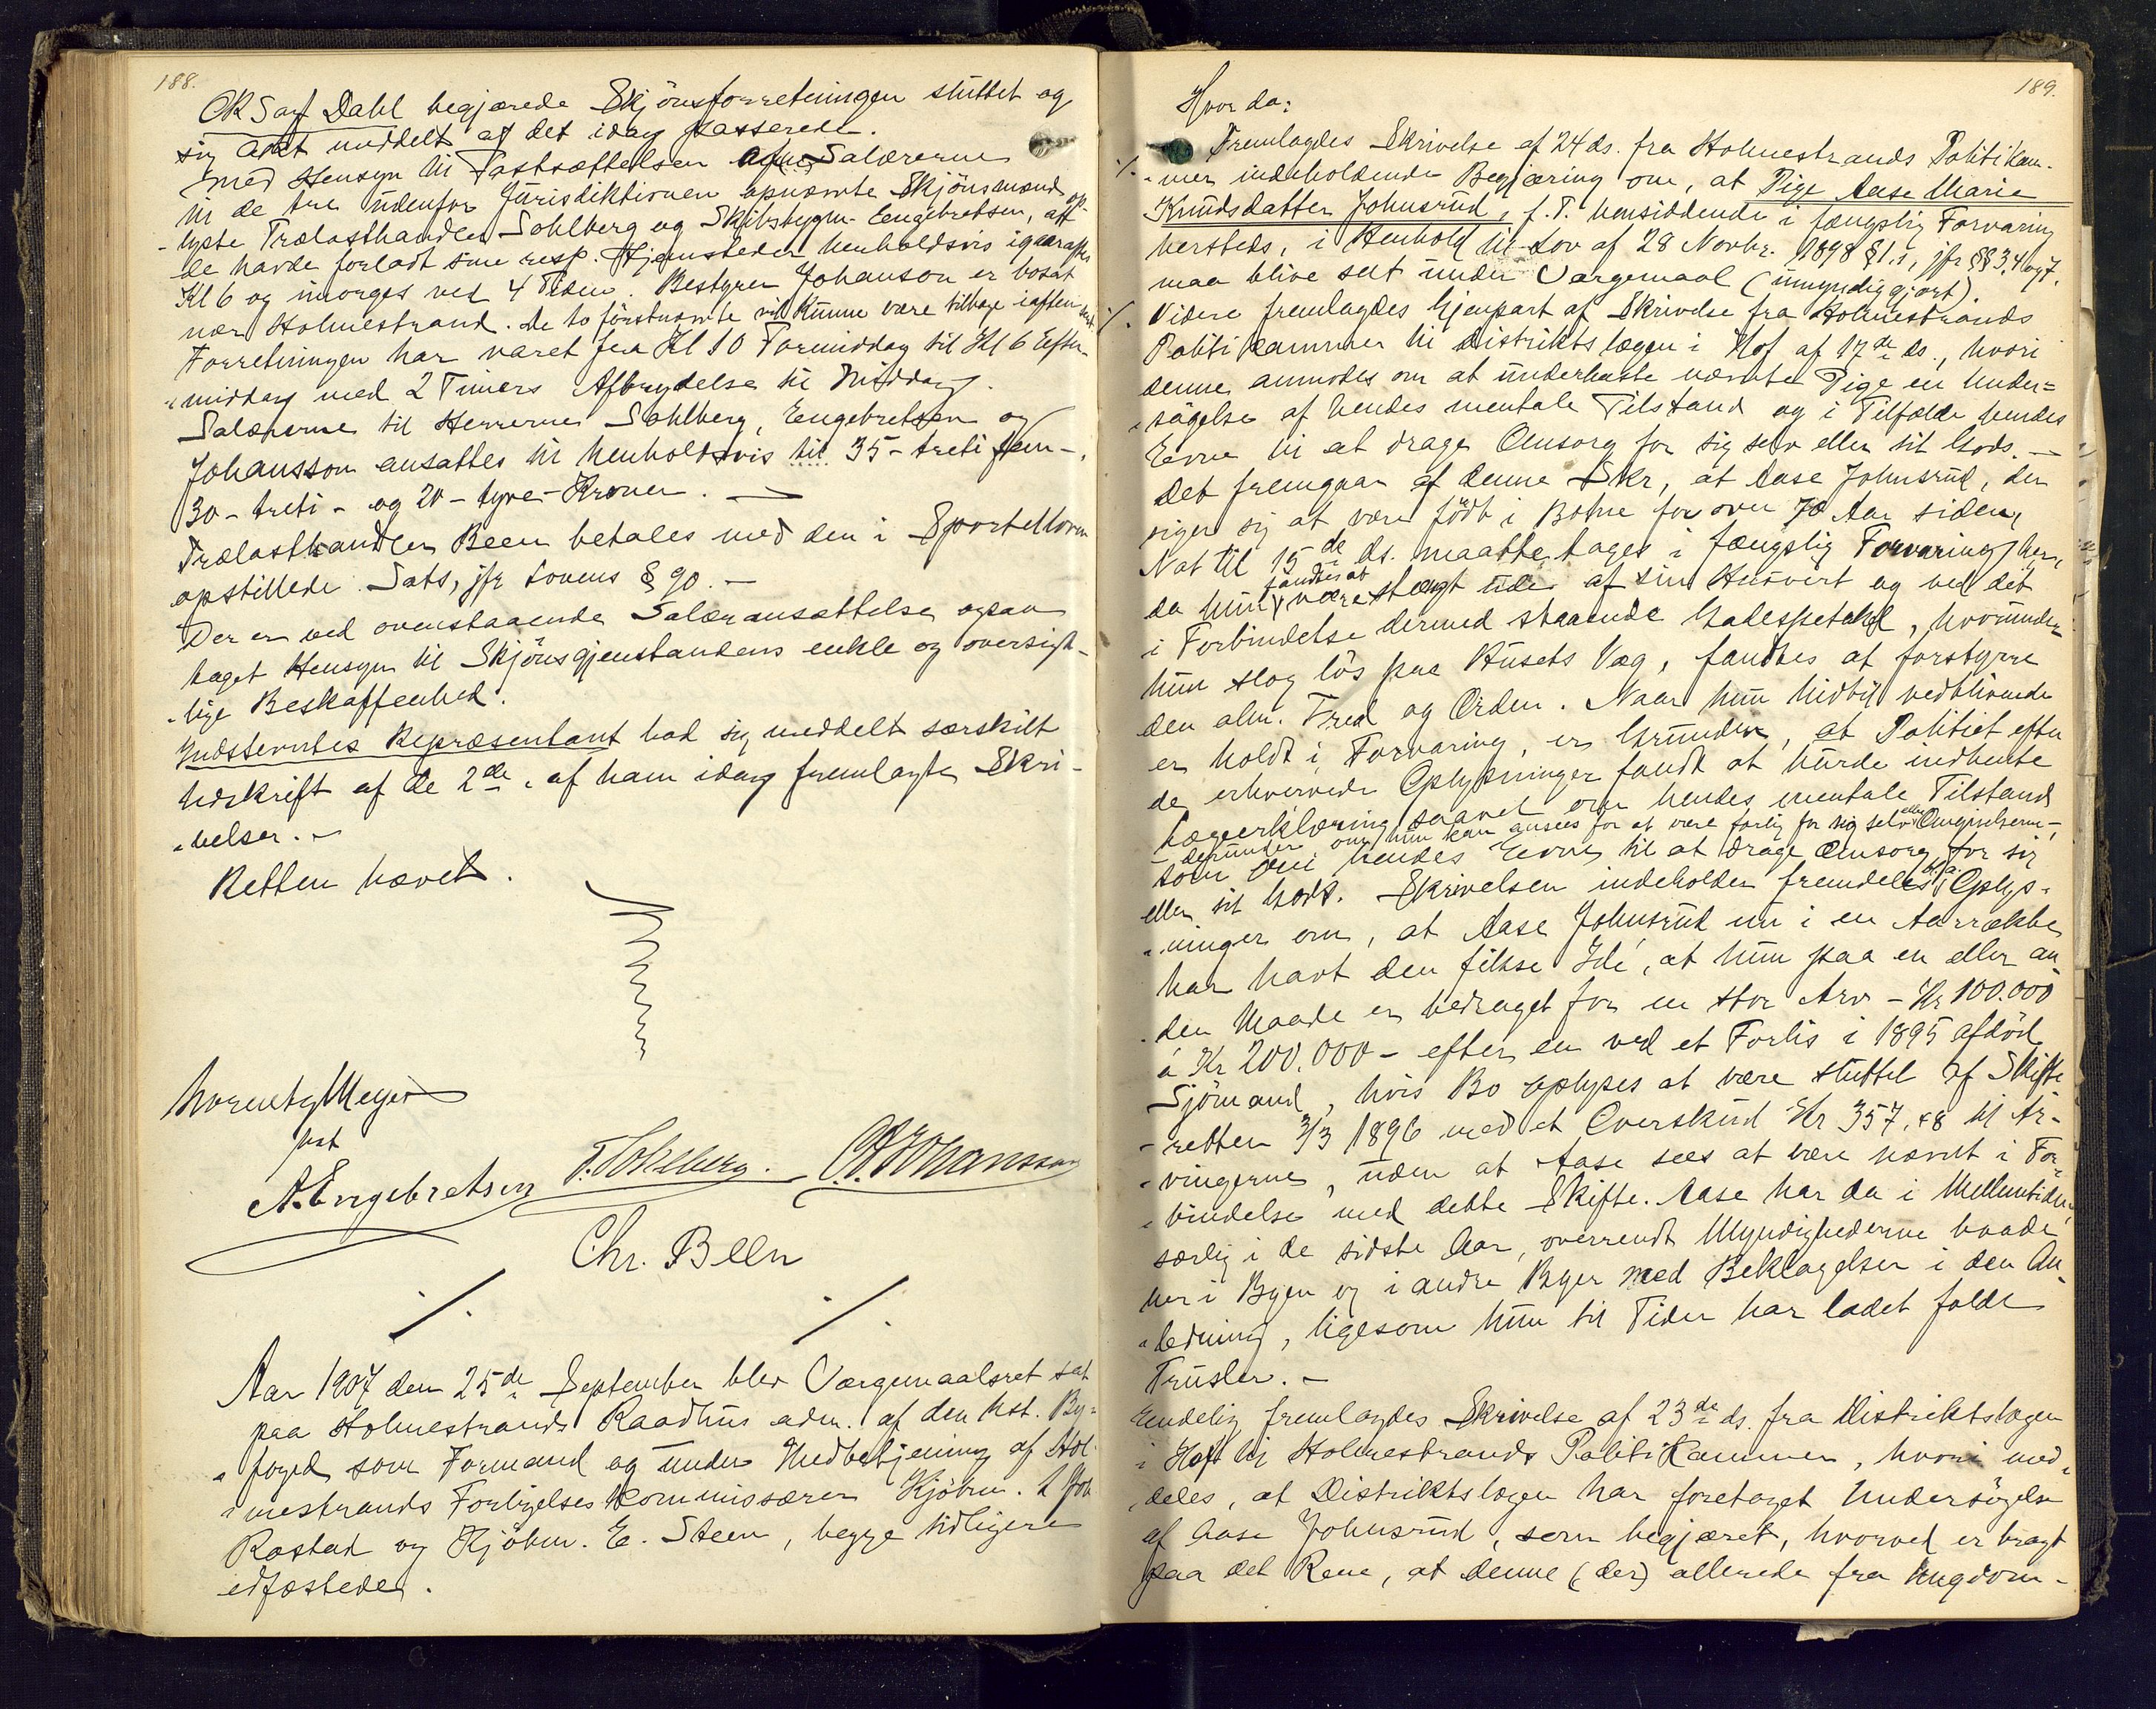 188.
OR Sagf Dahl begjærede Skjönsforretningen sluttet og
sig Akt meddelt af det idag passerede.
Med Hensyn til Fastsættelsen af Salærerne
til de tre udenfor Jurisdiktionen opnævnte Skjönsmænd op-
lyste Trælasthandler Sohlberg og Skibsbygger Engebretsen, at
de havde forladt sine resp. Hjemsteder henholdsvis igaaraftes
Kl 6 og imorges ved 4 Tiden. Bestyrer Johanson er bosat
nær Holmestrand. De to förstnævnte vil kunne være tilbage iaften
Forretningen har varet fra Kl 10 Formiddag til Kl 6 Efter-
middag med 2 Timers Afbrydelse til Middag.
Salærerne til Herrerne Sohlberg, Engebretsen og
Johansson ansattes til henholdsvis til 35 - treti fem -,
30 - treti - og 20 - tyve - Kroner. —
Trælasthandler Been betales med den i Sportelloven
opstillede Sats, jfr Lovens § 90. —
Der er ved ovenstaaende Salæransættelse ogsaa
taget Hensyn til Skjönsgjenstandens enkle og oversigt-
lige Beskaffenhed.
Indstevntes Repræsentant bad sig meddelt særskilt
Udskrift af de 2de af ham idag fremlagte Skri-
velser. —
Retten hævet.
Lorentz Meyer
kst
A. Engebretsen F. Sohlberg. C. Johansson
Chr. Been
Aar 1907 den 25de September blev Værgemaalsret sat
paa Holmestrands Raadhus adm. af den kst. By-
foged som Formand og under Medbetjening af Hol-
mestrands Forligelseskommissærer Kjöbm. L Joh
Rostad og Kjöbm. E. Steen, begge tidligere
edfæstede.
189.
Hvor da:
Fremlagdes Skrivelse af 24 ds. fra Holmestrands Politikam-
mer indeholdende Begjæring om, at Pige Aase Marie
Knudsdatter Johnsrud, f. T. hensiddende i fængslig Forvaring
hersteds, i Henhold til Lov af 28 Novbr. 1898 § 1.1, jfr §§ 3, 4 og 7,
maa blive sat under Værgemaal (umyndiggjort).
Videre fremlagdes Gjenpart af Skrivelse fra Holmestrands
Politikammer til Distriktslægen i Hof af 17de ds., hvori
denne anmodes om at underkaste nævnte Pige en Under-
sögelse af hendes mentale Tilstand og i Tilfælde hendes
Evne til at drage Omsorg for sig selv eller sit Gods. —
Det fremgaar af denne Skr, at Aase Johnsrud, der
siger sig at være födt i Botne for over 70 Aar siden,
Nat til 15de ds. maatte tages i fængslig Forvaring her,
da hun fandtes at være stængt ude af sin Husvert og ved det
i Forbindelse dermed staaende Gadespetakel, hvorunder
hun slog lös paa Husets Væg, fandtes at forstyrre
den alm. Fred og Orden. Naar hun hidtil vedblivende
er holdt i Forvaring, er Grunden, at Politiet efter
de erhvervede Oplysninger fandt at burde indhente
Lægeerklæring saavel om hendes mentale Tilstand
- derunder om hun kan ansees for at være farlig for sig selv eller Omgivelserne -,
som om hendes Evne til at drage Omsorg for sig
eller sit Gods. Skrivelsen indeholder fremdeles bl. a. Oplys-
ninger om, at Aase Johnsrud nu i en Aarrække
har havt den fikse Idé, at hun paa en eller an-
den Maade er bedraget for en stor Arv - Kr 100.000
á Kr 200.000 - efter en ved et Forlis i 1895 afdöd
Sjömand, hvis Bo oplyses at være sluttet af Skifte-
retten 3/3 1896 med et Overskud Kr 357,48 til Ar-
vingerne, uden at Aase sees at være nævnt i For-
bindelse med dette Skifte. Aase har da i Mellemtiden,
særlig i de sidste Aar, overrendt Myndighederne baade
her i Byen og i andre Byer med Beklagelser i den An-
ledning, ligesom hun til Tider har ladet falde
Trusler. —
Endelig fremlagdes Skrivelse af 23de ds. fra Distriktslægen
i Hof til Holmestrands Politikammer, hvori med-
deles, at Distriktslægen har foretaget Undersögelse
af Aase Johnsrud, som begjæret, hvorved er bragt
paa det Rene, at denne (der) allerede fra Ungdom-